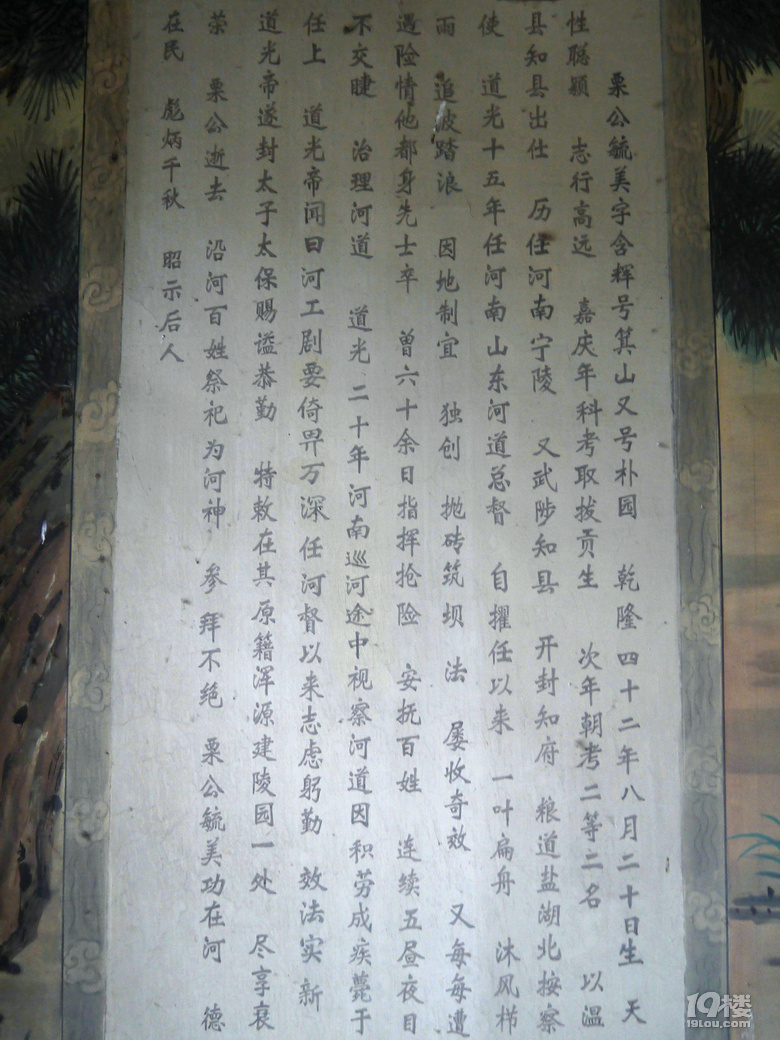 栗公毓美字含辉号箕山又号朴园 乾隆四十二年八月二十日生 天
性聪颖 志行高远 嘉庆年科考取拔贡生 次年朝考二等二名 以温
县知县出仕 历任河南宁陵 又武陟知县 开封知府 粮道盐湖北按察
使 道光十五年任河南山东河道总督 自擢任以来 一叶扁舟 沐风栉
雨 追波踏浪 因地制宜 独创 抛砖筑坝 法 屡收奇效 又每每遭
遇险情他都身先士卒 曾六十余日指挥抢险 安抚百姓 连续五昼夜目
不交睫 治理河道 道光二十年河南巡河途中视察河道因积劳成疾薨于
任上 道光帝闻曰河工剧要倚畀万深任河督以来志虑躬勤 效法实新
道光帝遂封太子太保赐谥恭勤 特敕在其原籍浑源建陵园一处 尽享哀
荣 栗公逝去 沿河百姓祭祀为河神 参拜不绝 栗公毓美功在河 德
在民 彪炳千秋 昭示后人
19楼
19lou.com